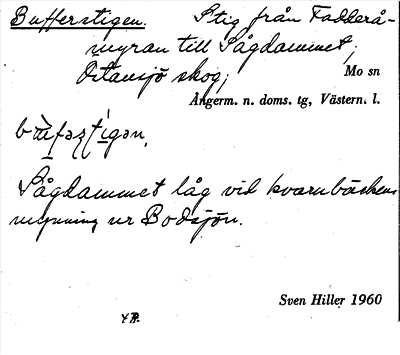 Bufferstigen. Stig från Fadderå-
myran till Sågdammet,
Ottansjö skog;
Mo sn
Ångerm. n. doms. tg, Västern. l.
Sågdammet låg vid kvarnbäckens
mynning ur Bodsjön.
Sven Hiller 1960